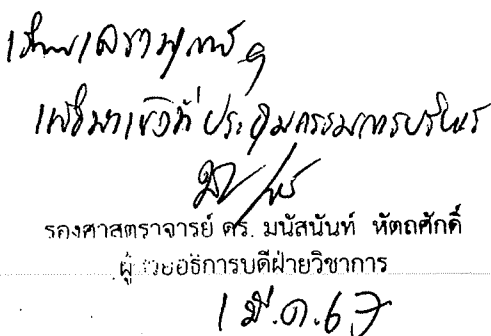 เรียน เลขานุการฯ
เพื่อนำเข้าที่ประชุมกรรมการบริหาร
รองศาสตราจารย์ ดร. มนัสนันท์ หัตถศักดิ์
ผู้ช่วยอธิการบดีฝ่ายวิชาการ
1 มี.ค. 67